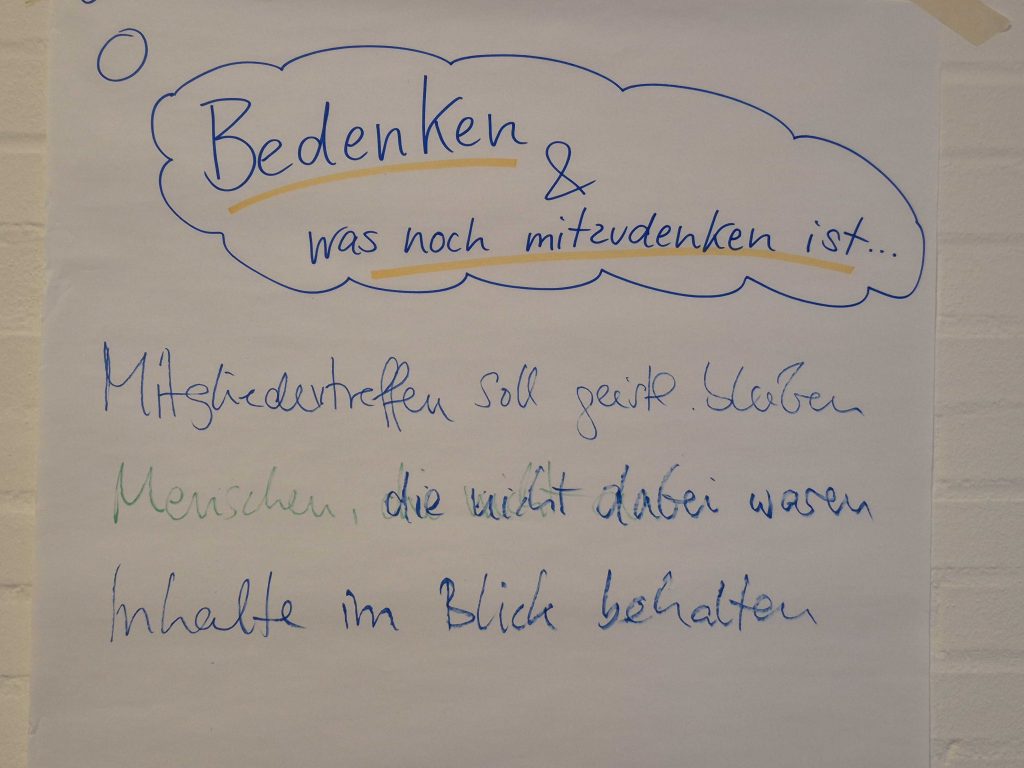 Bedenken
&
was noch mitzudenken ist...
Mitgliedertreffen soll geistl. bleiben
Menschen, die nicht dabei waren
Inhalte im Blick behalten